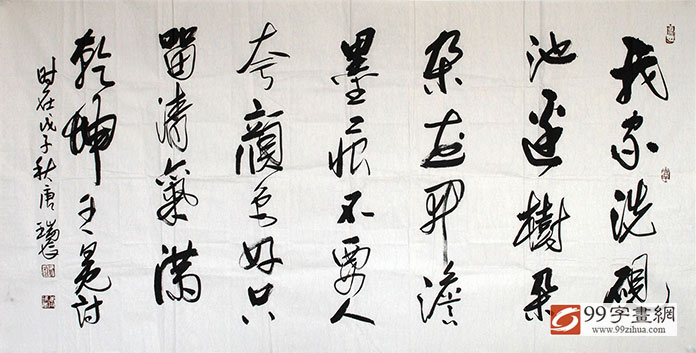 我家洗砚
池边樹朵
朵花开澹
墨痕不要人
夸顏色好只
留清氣满
乾坤王冕诗
时在戊子秋唐瑞芝
99字畫網
www.99zihua.com